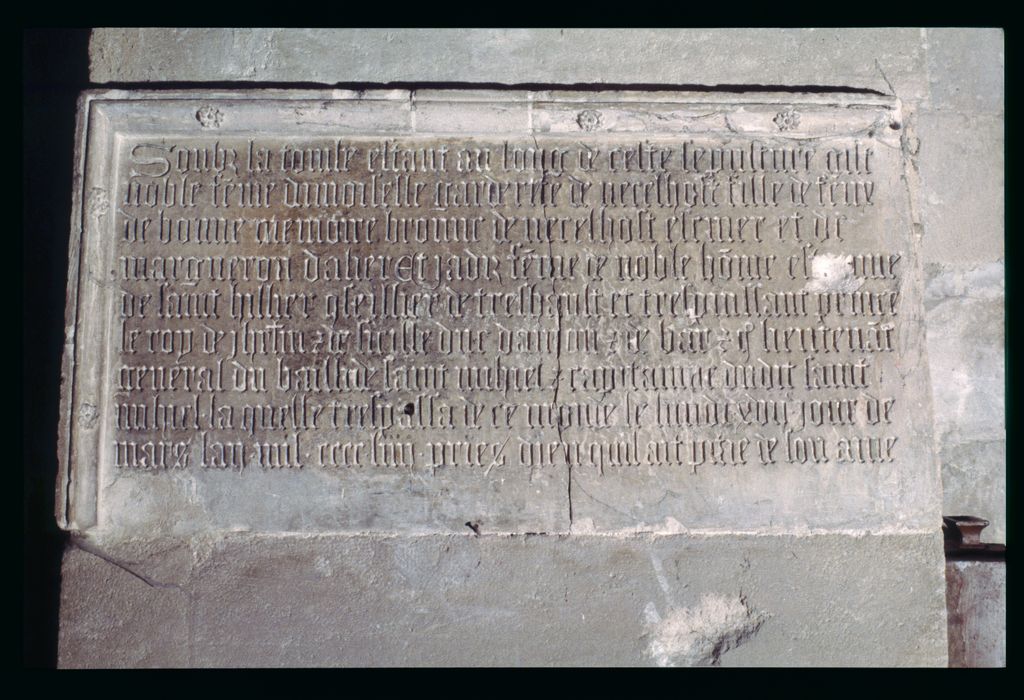 Soubz la tombe estant au long de ceste sepulture gist
noble fēme damoiselle margerete de fille de feux
de bonne memoire de escuier et de
margueron Et jadiz fēme de noble hōme
de saint hillier cōseillier de treshault et trespuissant prince
le roy de jhrl̄m z de sicille duc daniou z de bar z lieutenāt
general du bailliage saint mihiel z capitainne dudit saint
mihiel la quelle trespassa de ce monde le lundi xviij jour de
mars lan mil cccc liij priez dieu quil ait pitie de son ame